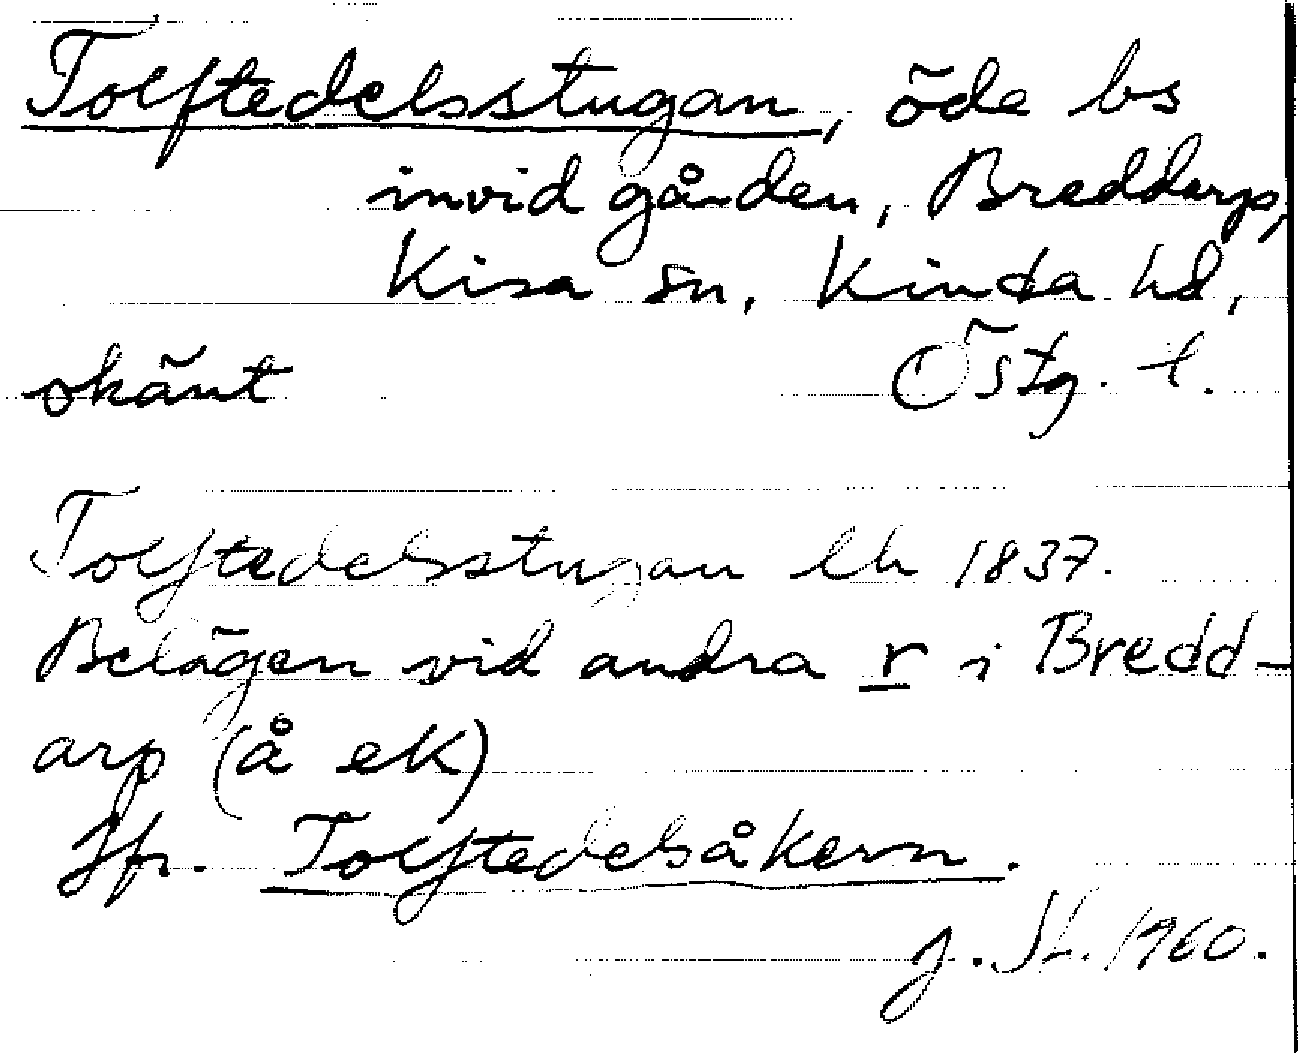 Tolftedelsstugan, öde bs
invid gården, Breddarp,
Kisa sn, Kinda hd,
skänt Östg. l.
Tolftedelsstugan lh 1837.
Belägen vid andra r i Bredd-
arp (å ek)
Jfr. Tolftedelsåkern.
J. SL. 1960.